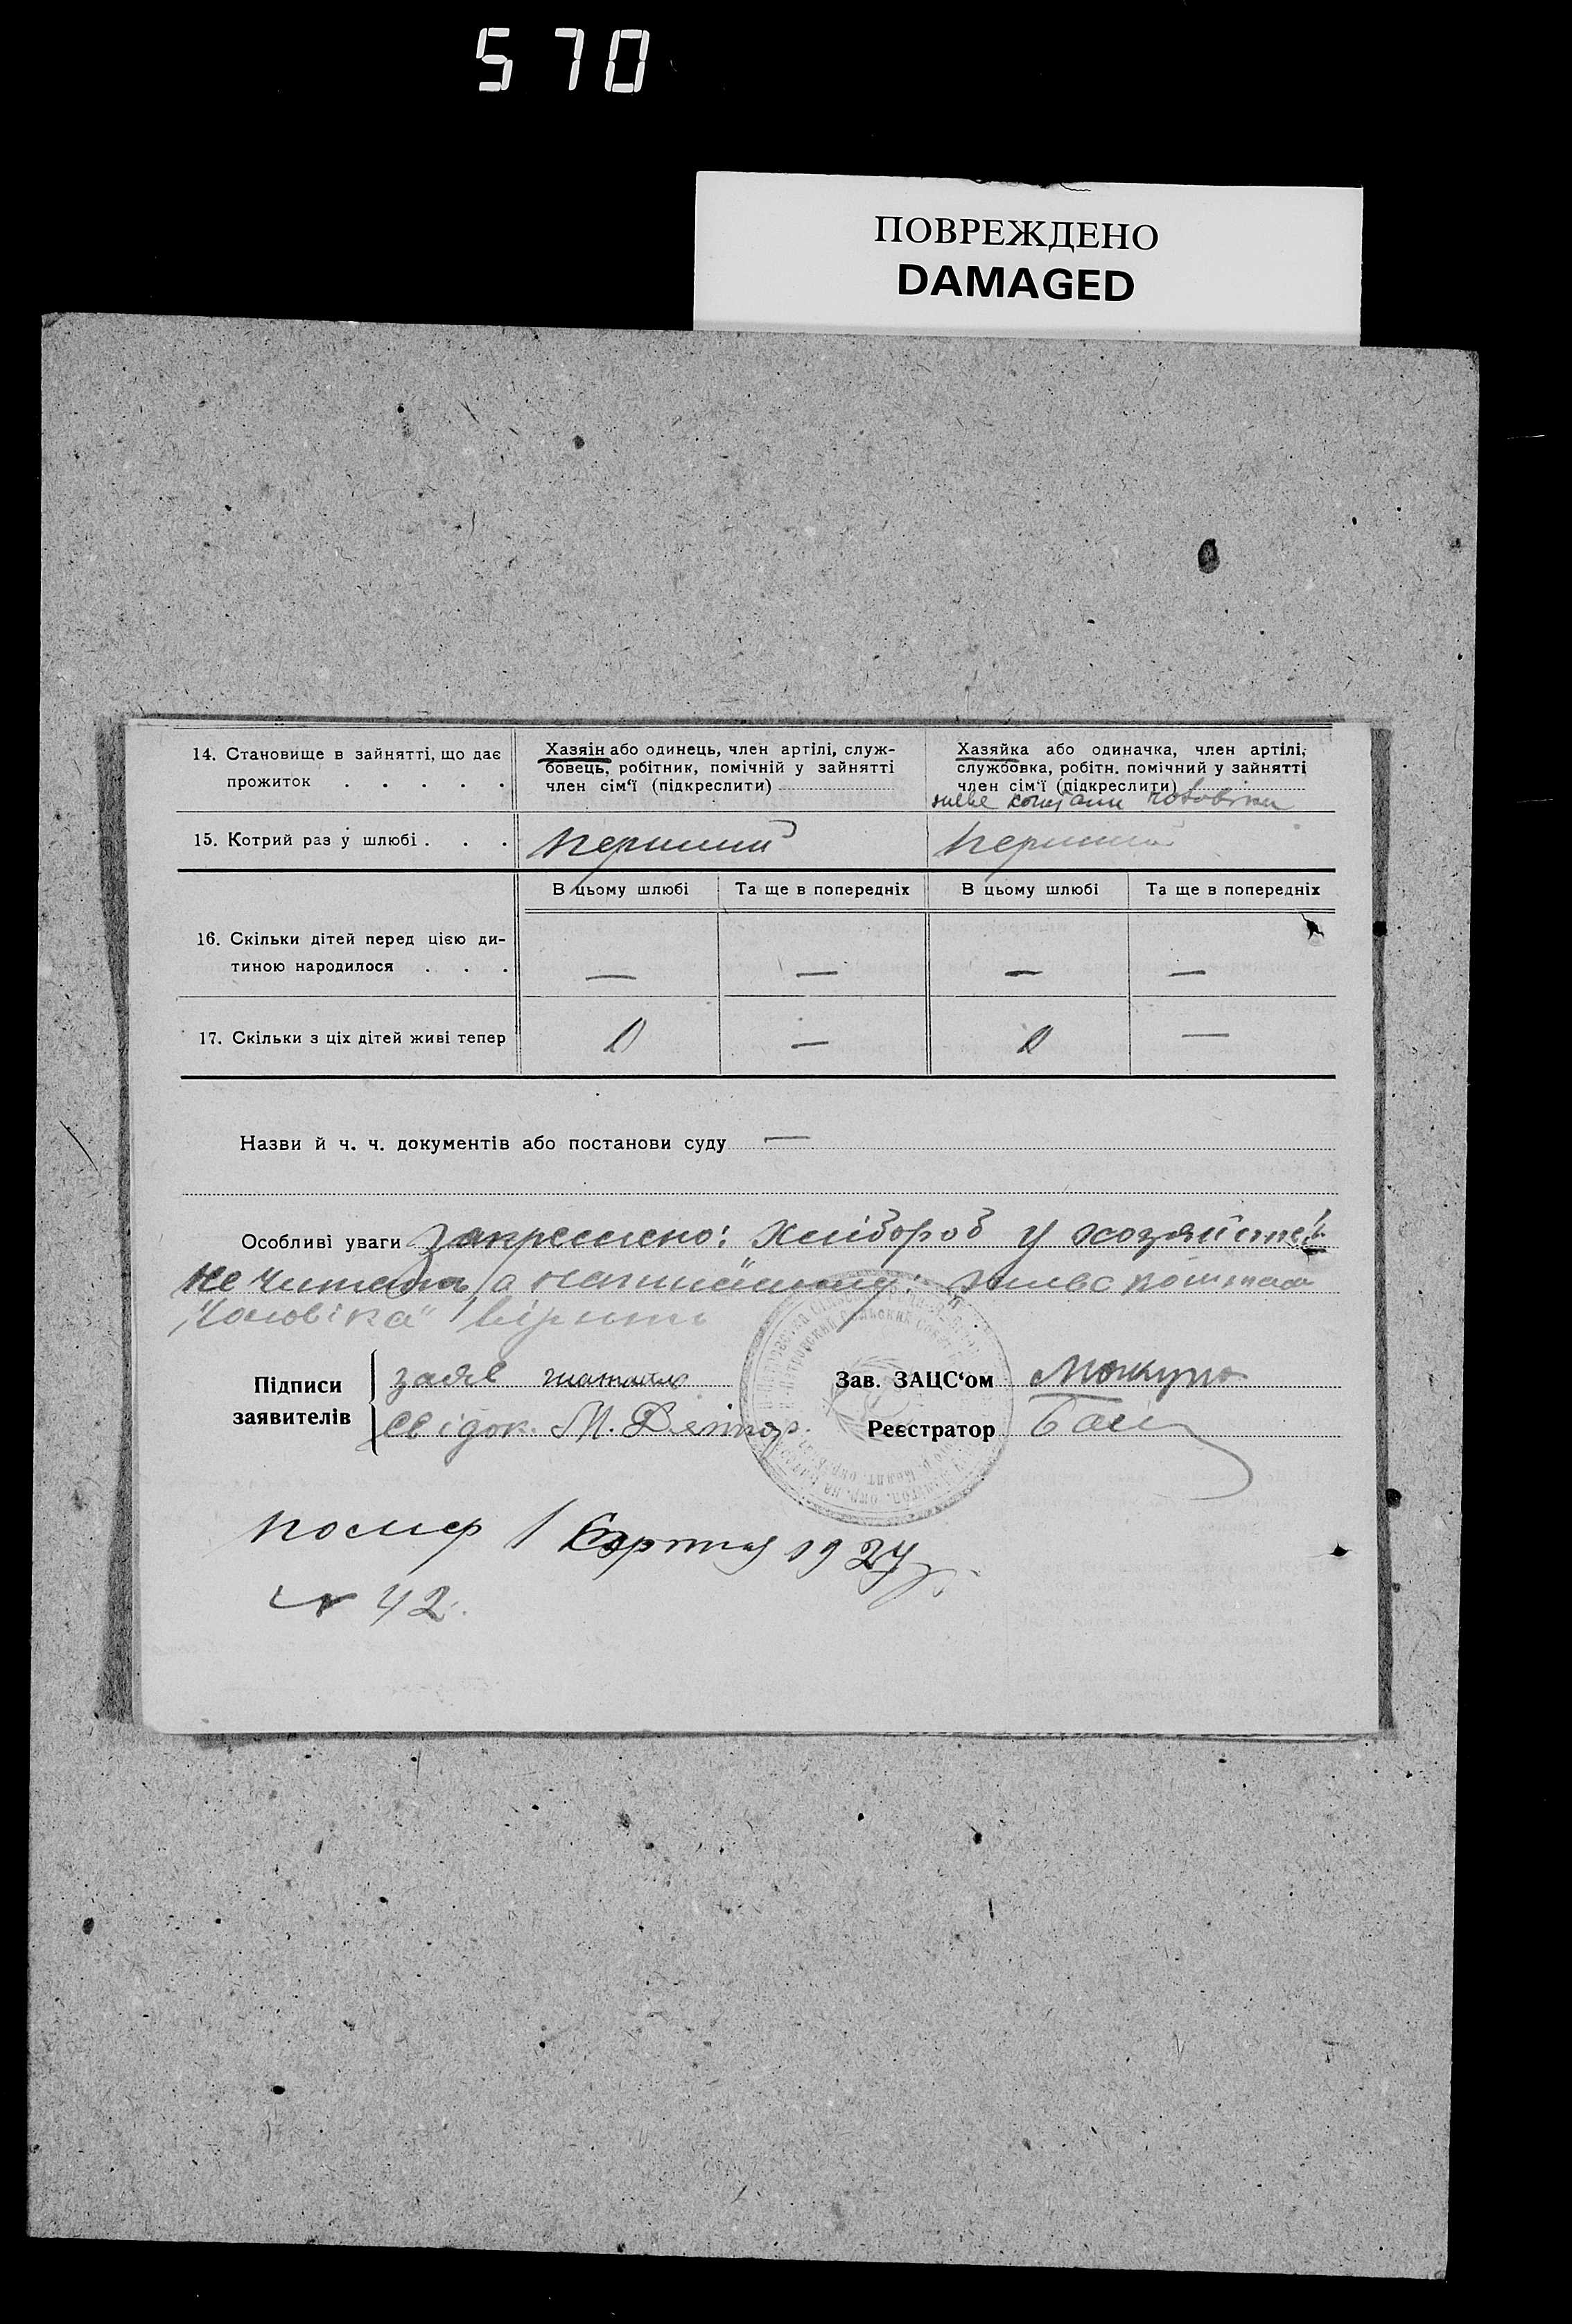 570
ПОВРЕЖДЕНО
DAMAGED
14. Становище в зайнятті, що дає
прожиток . . . . .
Хазяін або одинець, член артілі, служ-
бовець, робітник, помічній у зайнятті
член сім'ї (підкреслити)
Хазяйка або одиначка, член артілі,
службовка, робітн. помічний у зайнятті
член сім'ї (підкреслити)
живе
15. Котрий раз у шлюбі . . .
перший
перший
В цьому шлюбі
Та ще в попередніх
В цьому шлюбі
Та ще в попередніх
16. Скільки дітей перед цією ди-
тиною народилося . . .
— — — —
17. Скільки з ціх дітей живі тепер
0 — 0 —
Назви й ч. ч. документів або постанови суду —
Особливі уваги закреслено: хлібороб у хозяйстві
не читать, а
"чоловіка" вірить
Підписи
заявителів
свідок. М.
Зав. ЗАЦС'ом
Реєстратор
помер 1 1927 р.
№ 42.